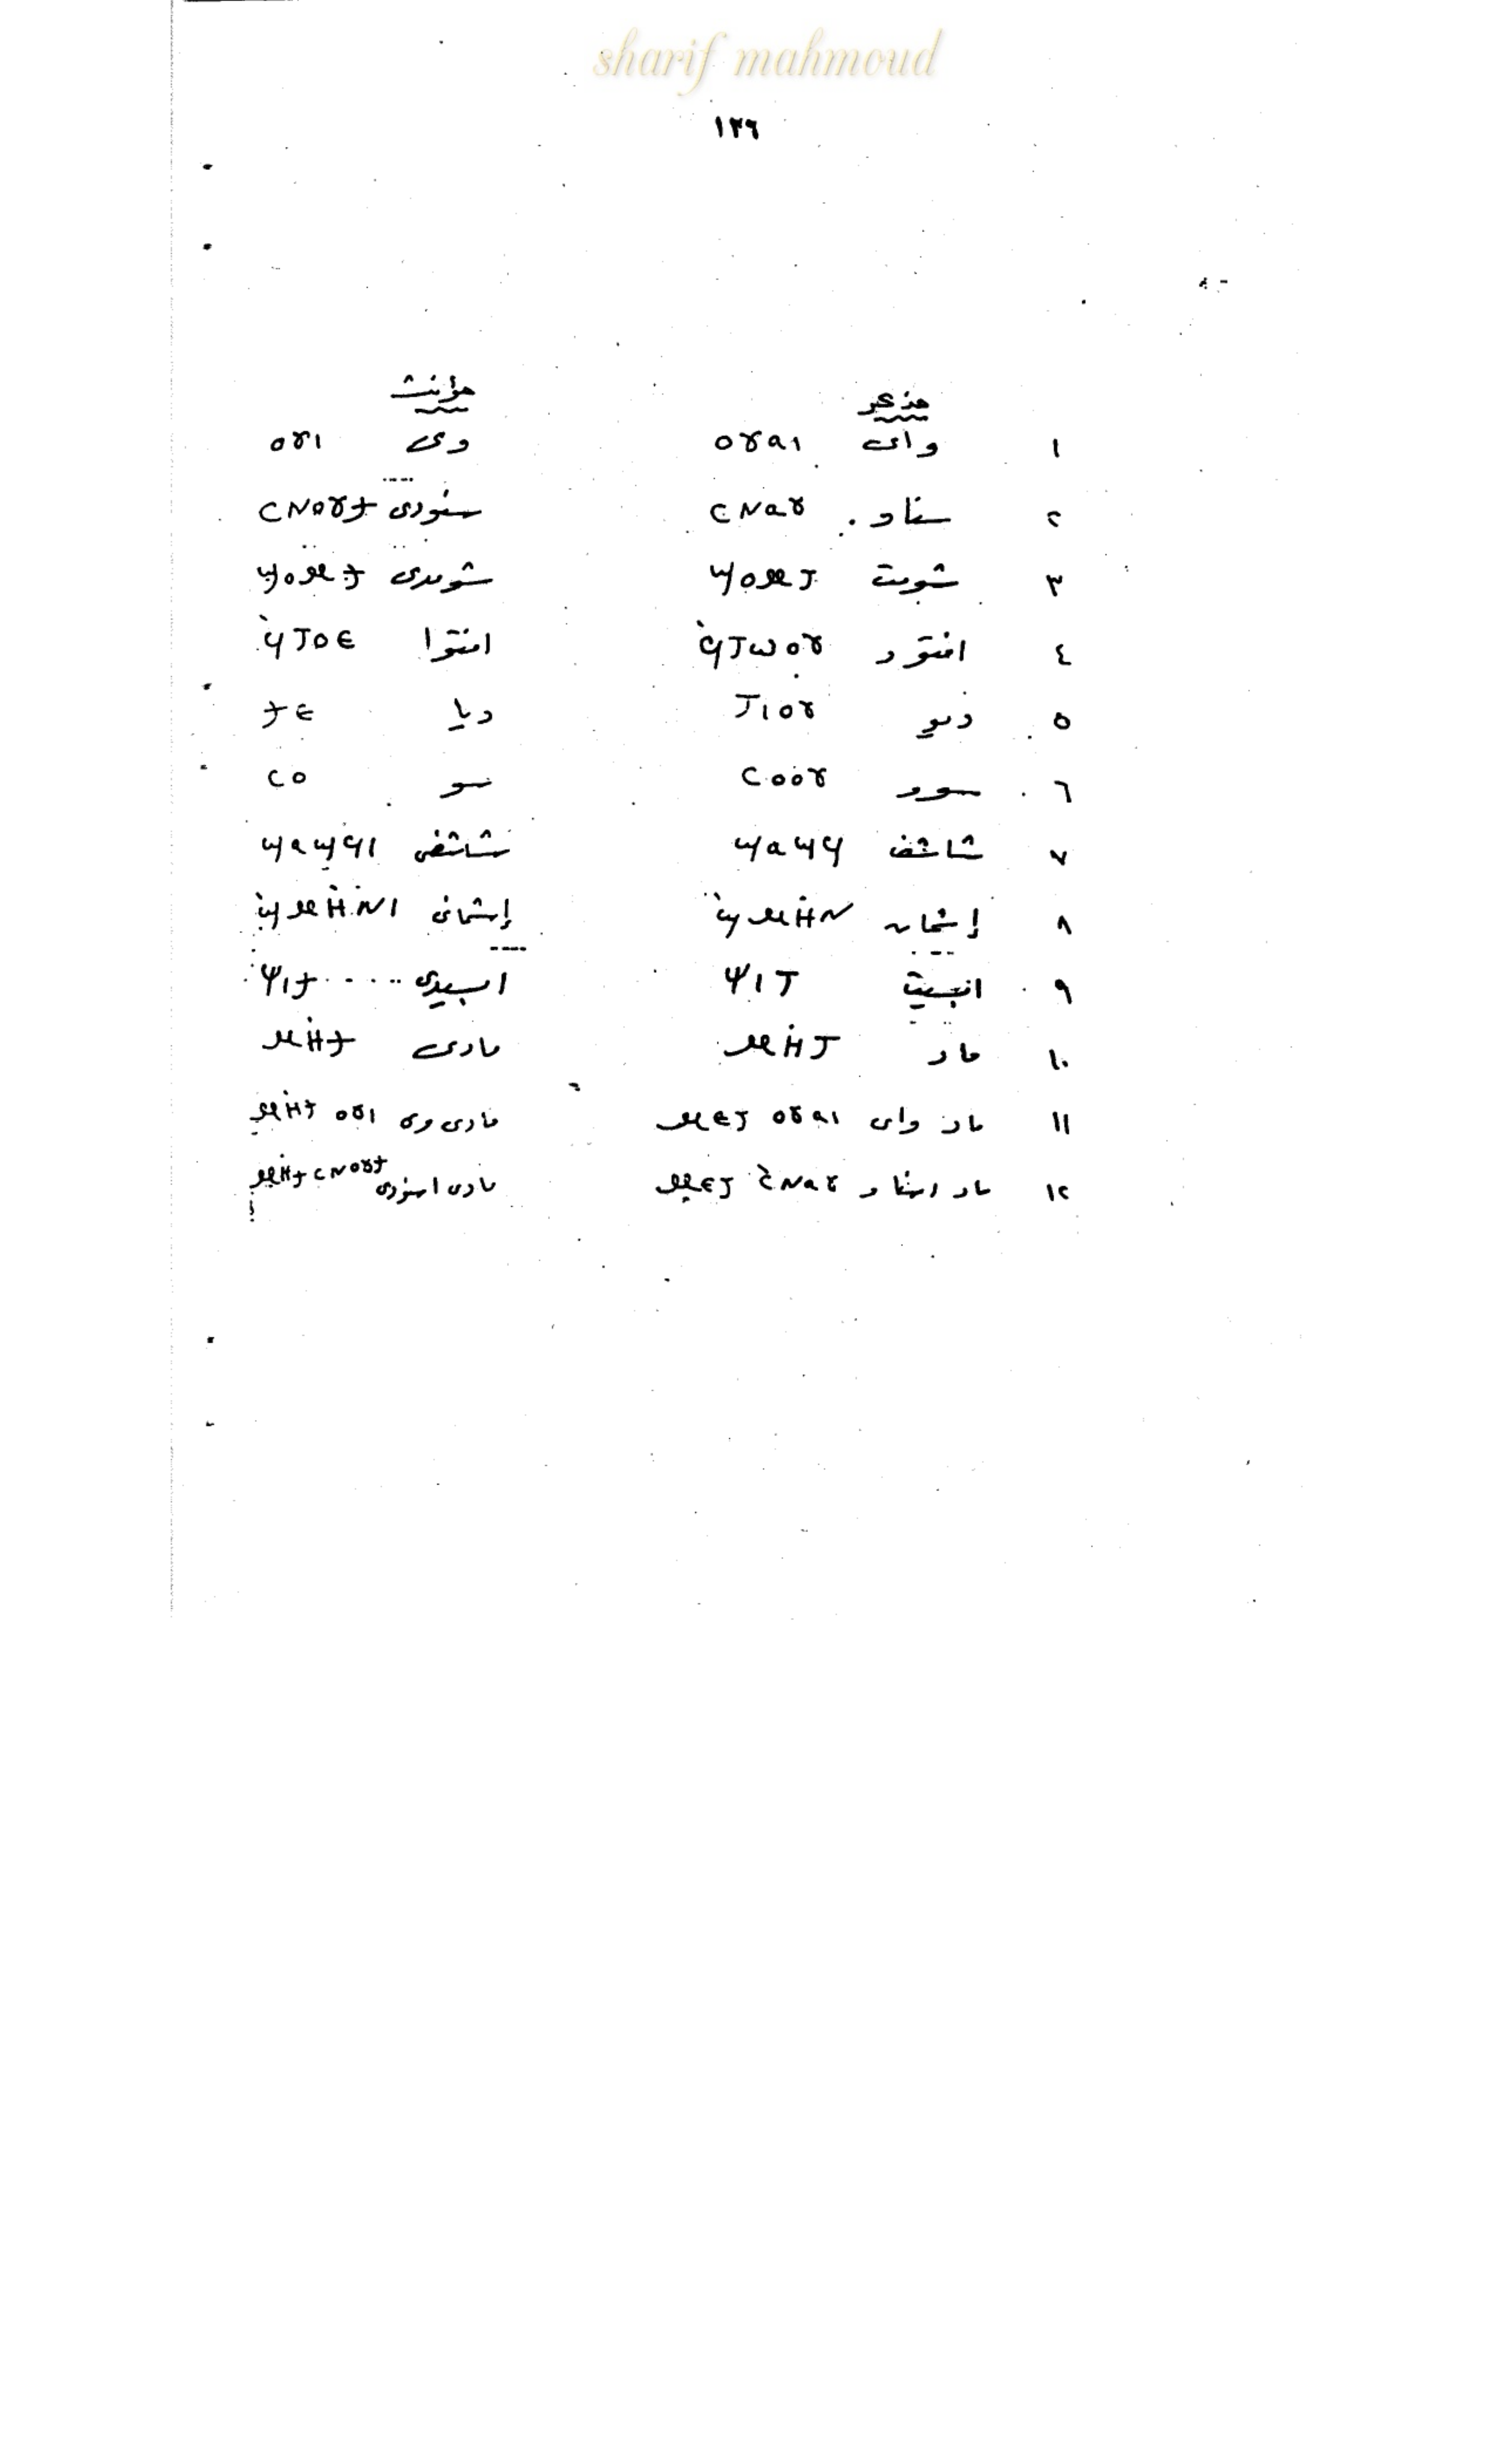 sharif mahmoud
١٣٦
مذكر مؤنث
١ واى ⲟⲩⲁⲓ وى ⲟⲩⲓ
٢ سناو ⲥⲛⲁⲩ سنودى ⲥⲛⲟⲩϯ
٣ شومت ϣⲟⲙⲧ شومدى ϣⲟⲙϯ
٤ افتوو ϥ̀ⲧⲱⲟⲩ افتوا ϥ̀ⲧⲟⲉ
٥ ديو ⲧⲓⲟⲩ ديا ϯⲉ
٦ سوو ⲥⲟⲟⲩ سو ⲥⲟ
٧ شاشف ϣⲁϣϥ شاشفى ϣⲁϣϥⲓ
٨ إشمان ϣ̀ⲙⲏⲛ إشمانى ϣ̀ⲙⲏⲛⲓ
٩ ابسيت ⲯⲓⲧ ابسيدى ⲯⲓϯ
١٠ ماد ⲙⲏⲧ مادى ⲙⲏϯ
١١ ماد واى ⲙⲉⲧ ⲟⲩⲁⲓ مادى وى ⲙⲏϯ ⲟⲩⲓ
١٢ ماد اسناو ⲙⲉⲧ ⲥ̀ⲛⲁⲩ مادى اسنودى ⲙⲏϯ ⲥⲛⲟⲩϯ